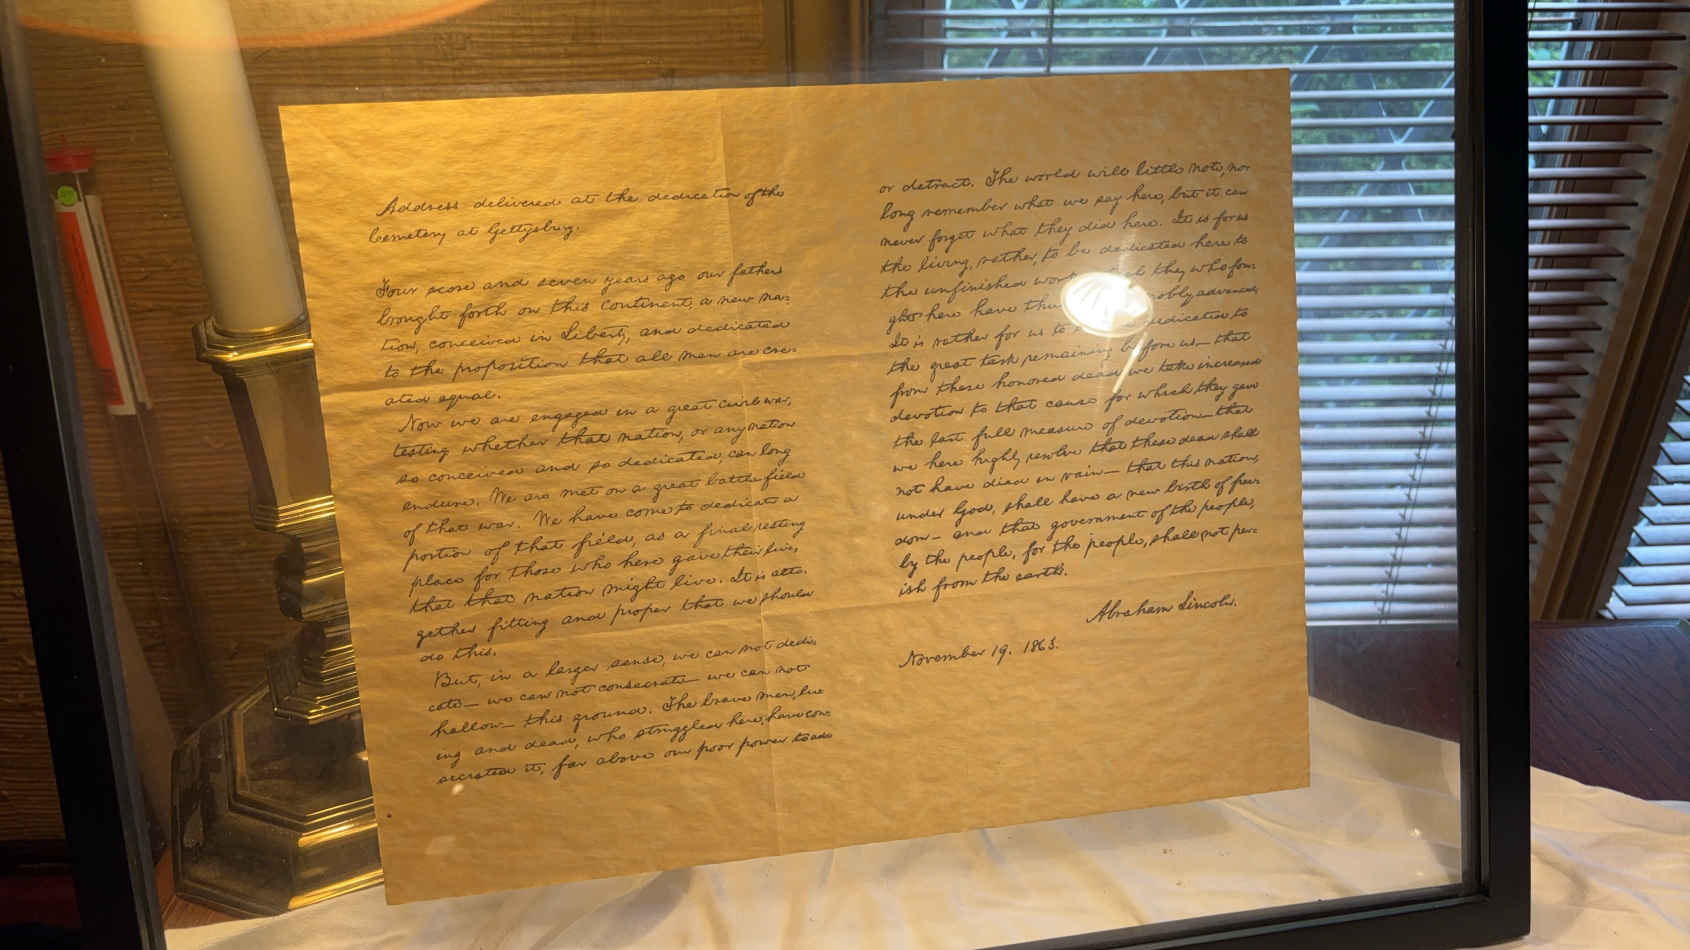 Address delivered at the dedication of the
Cemetery at Gettysburg.
Four score and seven years ago our fathers
brought forth on this continent, a new na-
tion, conceived in Liberty, and dedicated
to the proposition that all men are cre-
ated equal.
Now we are engaged in a great civil war,
testing whether that nation, or any nation
so conceived and so dedicated, can long
endure. We are met on a great battle field
of that war. We have come to dedicate a
portion of that field, as a final resting
place for those who here gave their lives,
that that nation might live. It is alto-
gether fitting and proper that we should
do this.
But, in a larger sense, we can not dedi-
cate— we can not consecrate— we can not
hallow— this ground. The brave men, liv-
ing and dead, who struggled here, have con-
secrated it, far above our poor power to add
or detract. The world will little note, nor
long remember what we say here, but it can
never forget what they did here. It is for us
the living, rather, to be dedicated here to
the unfinished they who fou-
ght here have nobly advanced.
It is rather for us to dedicated to
the great task remaining before us— that
from these honored dead we take increased
devotion to that cause for which they gave
the last full measure of devotion— that
we here highly resolve that these dead shall
not have died in vain— that this nation,
under God, shall have a new birth of free-
dom— and that government of the people,
by the people, for the people, shall not per-
ish from the earth.
Abraham Lincoln.
November 19. 1863.